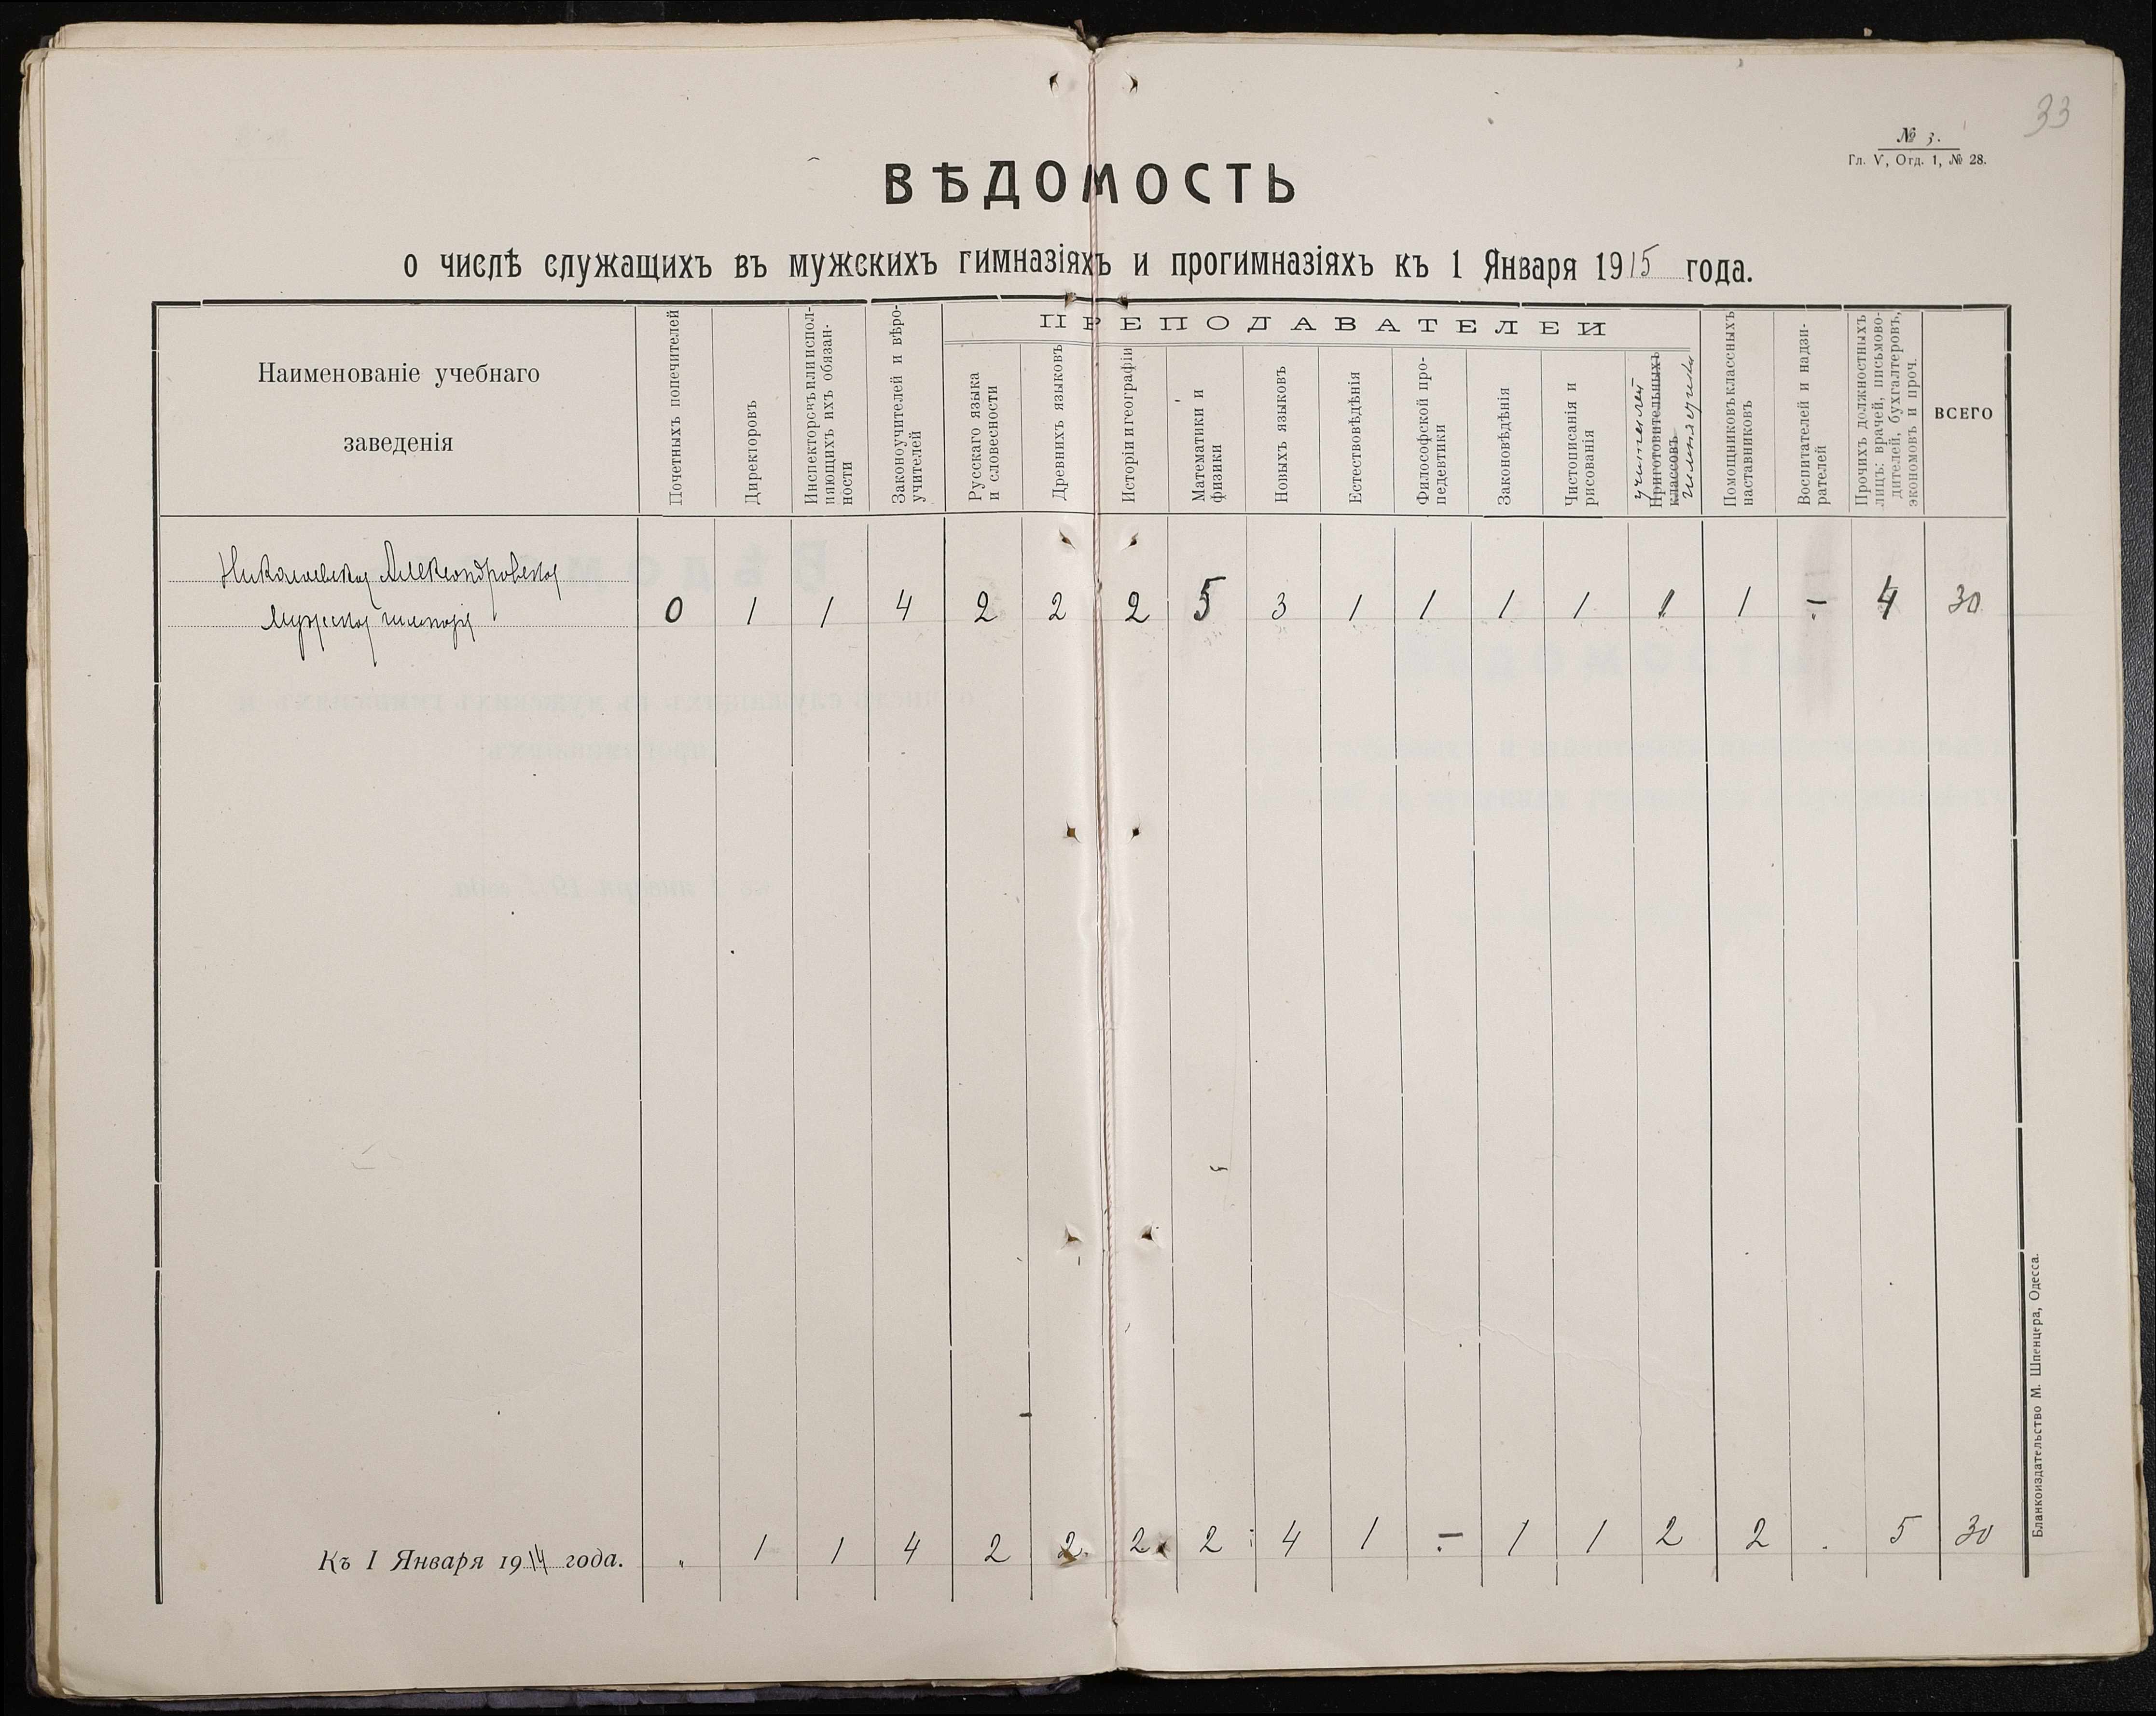 33
№ 3.
Гл. V, Отд. 1, № 28.
ВѢДОМОСТЬ
о числѣ служащихъ въ мужскихъ гимназіяхъ и прогимназіяхъ къ 1 Января 1915 года.
Наименованіе учебнаго
заведенія
Почетныхъ попечителей
Директоровъ
Инспекторовъ или испол-
няющихъ ихъ обязан-
ности
Законоучителей и вѣро-
учителей
ПРЕПОДАВАТЕЛЕЙ
Русскаго языка
и словесности
Древнихъ языковъ
Исторіи и географіи
Математики и
физики
Новыхъ языковъ
Естествовѣдѣнія
Философской про-
педевтики
Законовѣдѣнія
Чистописанія и
рисованія
учителей
Приготовительныхъ
классовъ
гимнастики
Помощниковъ классныхъ
наставниковъ
Воспитателей и надзи-
рателей
Прочихъ должностныхъ
лицъ: врачей, письмово-
дителей, бухгалтеровъ,
экономовъ и проч.
ВСЕГО
Николаевская Александровская
Мужская гимназія
0 1 1 4 2 2 2 5 3 1 1 1 1 1 1 - 4 30
Къ 1 Января 1914 года. „ 1 1 4 2 2 2 2 4 1 - 1 1 2 2 . 5 30
Бланкоиздательство М. Шпенцера, Одесса.